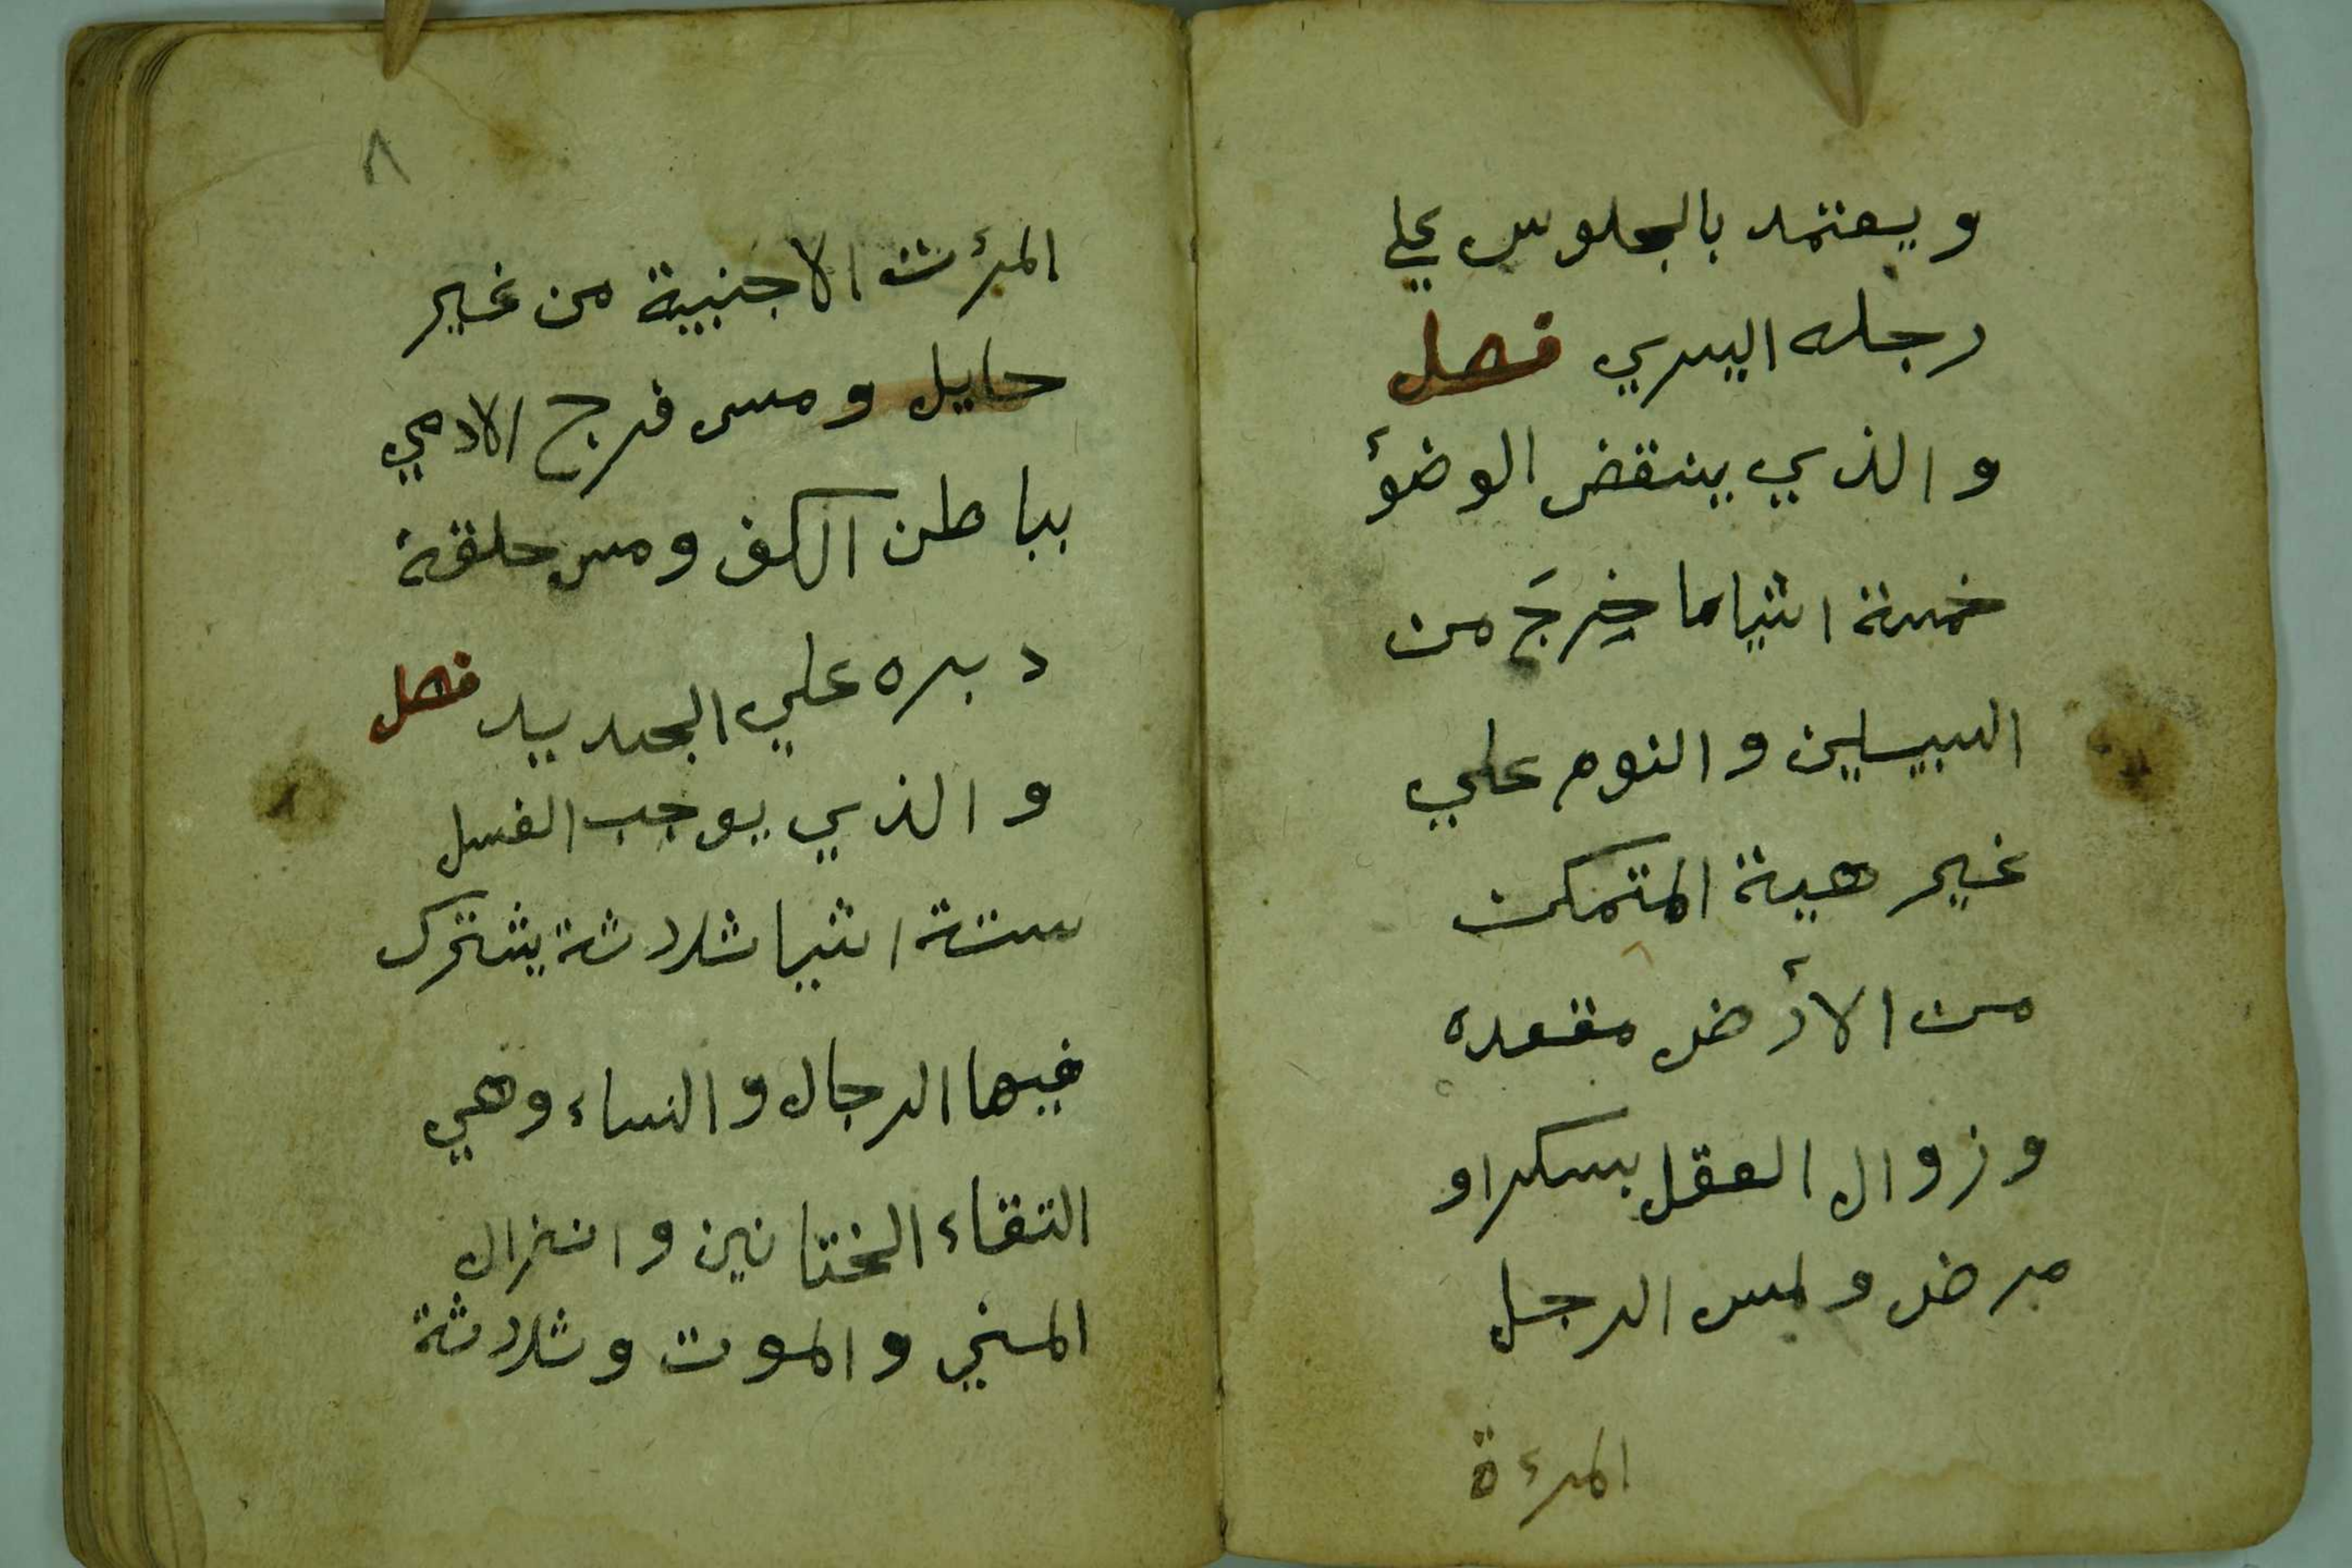 ويعتمد بالجلوس علي
رجله اليسري فصل
والذي ينقض الوضؤ
خمسة اشياما خرجَ من
السبيلين والنوم علي
غير هية المتمكن
من الأرض مقعده
وزوال العقل بسكراو
مرض ولمس الرجل
المرءة
٨
المرئت الاجنبية من غير
حايل ومس فرج الادمي
بباطن الكف ومس حلقة
دبره علي الجديد فصل
والذي يوجب الغسل
ستة اشيا ثلاثة يشترك
فيها الرجال والنساء وهي
التقاء الختانين وانزال
المني والموت وثلاثة